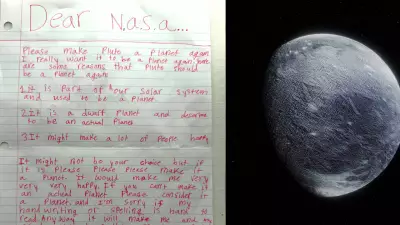 Dear N.a.s.a...
Please make Pluto a Planet again
I really want it to be a Planet again, here
are some reasons that Pluto should
be a Planet again
1.It is Part of our solar system
and used to be a Planet.
2.It is a dwarf Planet and deserve
to be an actual Planet
3.It might make a lot of People happy
It might not be your choice but if
it is Please Please Please make
it a Planet. It would make me very
very very happy. If you can't make it
an actual Planet Please consider it
a Planet, and I'm sorry if my
handwriting or spelling is hard to
read. Anyway it will make me and my